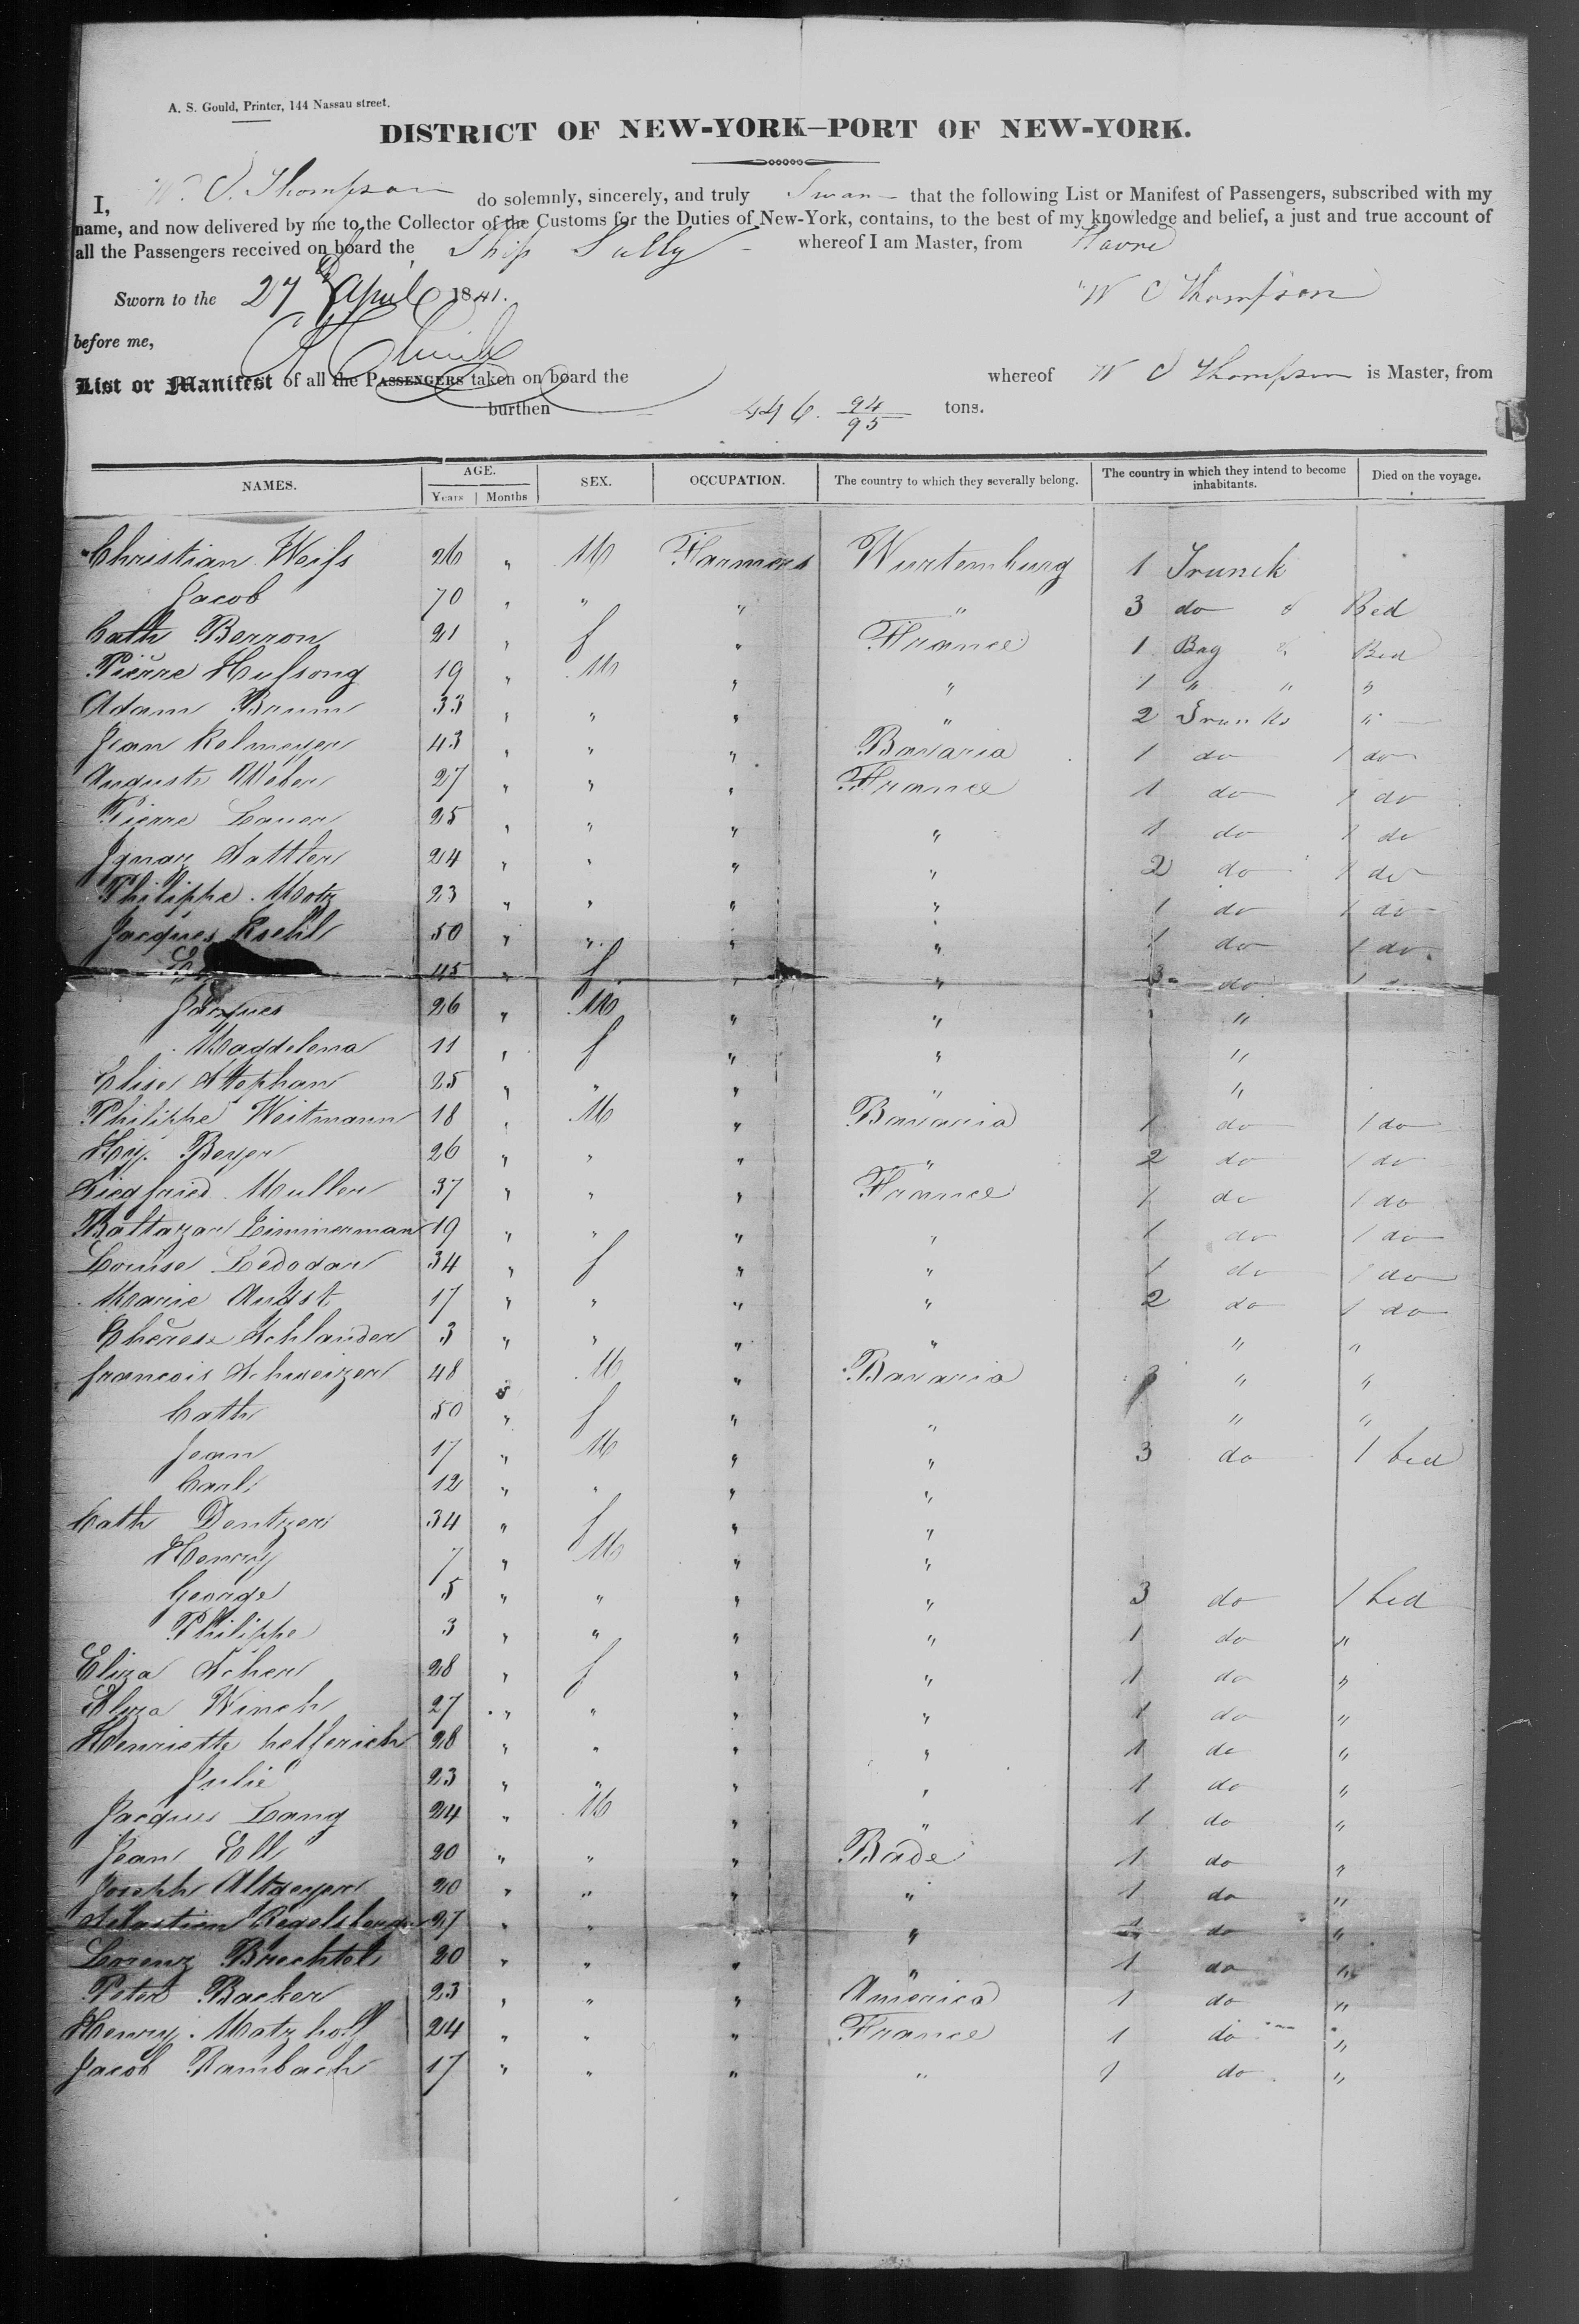 A. S. Gould, Printer, 144 Nassau street.
DISTRICT OF NEW-YORK–PORT OF NEW-YORK.
I, W. C. Thompson do solemnly, sincerely, and truly Swear that the following List or Manifest of Passengers, subscribed with my
name, and now delivered by me to the Collector of the Customs for the Duties of New-York, contains, to the best of my knowledge and belief, a just and true account of
all the Passengers received on board the Ship Sully whereof I am Master, from Havre
Sworn to the 27 April 1841. W C Thompson
before me,
List or Manifest of all the PASSENGERS taken on board the whereof W C Thompson is Master, from
burthen 446. 94/95 tons.
NAMES. AGE. Years Months SEX. OCCUPATION. The country to which they severally belong. The country in which they intend to become inhabitants. Died on the voyage.
Christian Weifs 26 " M Farmers Wurtemburg 1 Trunck
Jacob 70 " " " " 3 do & Bed
Cath Berron 21 " f " France 1 Bag & Bed
Pierre Hufsong 19 " M " " 1 " " "
Adam Braun 33 " " " " 2 Trunks "
Jean Kelmeyer 43 " " " Bavaria 1 do 1 do
Auguste Weber 27 " " " France 1 do 1 do
Pierre Lauer 25 " " " " 1 do 1 do
Ignaz Sattler 24 " " " " 2 do 1 do
Philippe Motz 23 " " " " 1 do 1 do
Jacques Koehl 50 " " " " 1 do 1 do
45 " f " " 3 do 1 do
Jacques 26 " M " " "
Magdelena 11 " f " " "
Elise Stephan 25 " " " " "
Philippe Weitmann 18 " M " Bavaria 1 do 1 do
Hy. Beyer 26 " " " " 2 do 1 do
Siegfried Muller 37 " " " France 1 do 1 do
Baltazar Zimmerman 19 " " " " 1 do 1 do
Louise Ledodar 34 " f " " 1 do 1 do
Marie Angst 17 " " " " 2 do 1 do
Therese Schlander 3 " " " " " "
francois Schweizer 48 " M " Bavaria " "
Cath 50 " f " " " "
Jean 17 " M " " 3 do 1 bed
Carl 12 " " " "
Cath Dentzer 34 " f " "
Henry 7 " M " "
George 5 " " " " 3 do 1 bed
Philippe 3 " " " " 1 do "
Eliza Scher 28 " f " " 1 do "
Eliza Winch 27 " " " " 1 do "
Henriette helferich 28 " " " " 1 do "
Julie 23 " " " " 1 do "
Jacques Lang 24 " M " " 1 do "
Jean Ell 20 " " " Bade 1 do "
Joseph Altgeyer 20 " " " " 1 do "
Sebastian Regelsberger 27 " " " " 1 do "
Lorenz Brechtel 20 " " " " 1 do "
Peter Backer 23 " " " America 1 do "
Henry Matzholf 24 " " " France 1 do "
Jacob Rambach 17 " " " " 1 do "